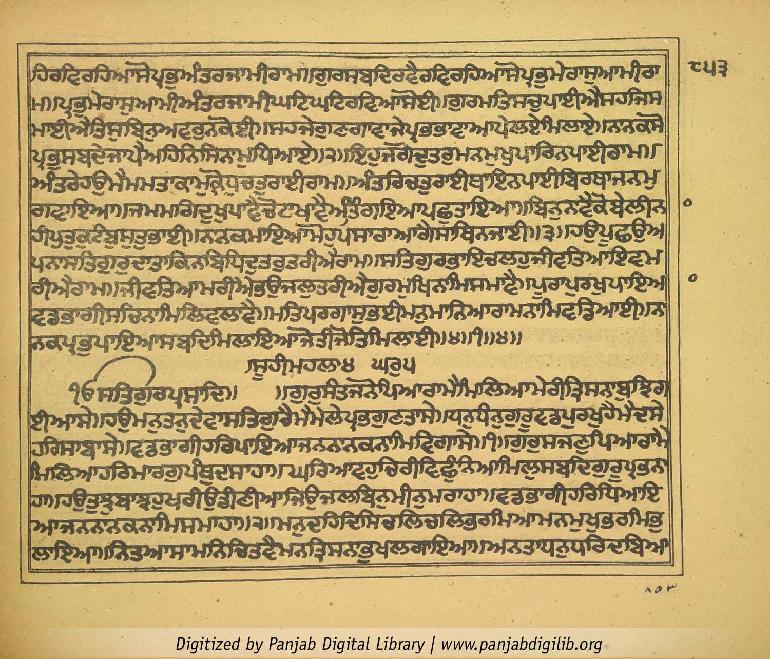 ਹਿਰਵਿਰਹਿਆਸੋਪ੍ਰਭੁਅੰਤਰਜਾਮੀਰਾਮ॥ਗੁਰਸਬਦਿਰਵੈਰਵਿਰਹਿਆਸੋਪ੍ਰਭੁਮੇਰਾਸੁਆਮੀਰਾ
ਮ॥ਪ੍ਰਭੁਮੇਰਾਸੁਆਮੀਅੰਤਰਜਾਮੀਘਟਿਘਟਿਰਵਿਆਸੋਈ॥ਗੁਰਮਤਿਸਚੁਪਾਈਐਸਹਜਿਸ
ਮਾਈਐਤਿਸੁਬਿਨੁਅਵਰੁਨਕੋਈ॥ਸਹਜੇਗੁਣਗਾਵਾਜੇਪ੍ਰਭਭਾਵਾਆਪੇਲਏਮਿਲਾਏ॥ਨਾਨਕਸੋ
ਪ੍ਰਭੁਸਬਦੇਜਾਪੈਅਹਿਨਿਸਿਨਾਮੁਧਿਆਏ॥੨॥ਇਹੁਜਗੋਦੁਤਰੁਮਨਮੁਖੁਪਾਰਿਨਪਾਈਰਾਮ॥
ਅੰਤਰੇਹਉਮੈਮਮਤਾਕਾਮੁਕ੍ਰੋਧੁਚਤੁਰਾਈਰਾਮ॥ਅੰਤਰਿਚਤੁਰਾਈਥਾਇਨਪਾਈਬਿਰਥਾਜਨਮੁ
ਗਵਾਇਆ॥ਜਮਮਗਿਦੁਖੁਪਾਵੈਚੋਟਾਖਾਵੈਅੰਤਿਗਇਆਪਛੁਤਾਇਆ॥ਬਿਨੁਨਾਵੈਕੋਬੇਲੀਨਾ
ਹੀਪੁਤੁਕੁਟੰਬੁਸੁਤੁਭਾਈ॥ਨਾਨਕਮਾਇਆਮੋਹੁਪਸਾਰਾਆਗੈਸਾਥਿਨਜਾਈ॥੩॥ਹਉਪੂਛਉਅ
ਪਨਾਸਤਿਗੁਰੁਦਾਤਾਕਿਨਬਿਧਿਦੁਤਰੁਤਰੀਐਰਾਮ॥ਸਤਿਗੁਰਭਾਇਚਲਹੁਜੀਵਤਿਆਇਵਮ
ਰੀਐਰਾਮ॥ਜੀਵਤਿਆਮਰੀਐਭਉਜਲੁਤਰੀਐਗੁਰਮੁਖਿਨਾਮਿਸਮਾਵੈ॥ਪੂਰਾਪੁਰਖੁਪਾਇਆ
ਵਡਭਾਗੀਸਚਿਨਾਮਿਲਿਵਲਾਵੈ॥ਮਤਿਪਰਗਾਸੁਭਈਮਨੁਮਾਨਿਆਰਾਮਨਾਮਿਵਡਿਆਈ॥ਨਾ
ਨਕਪ੍ਰਭੁਪਾਇਆਸਬਦਿਮਿਲਾਇਆਜੋਤੀਜੋਤਿਮਿਲਾਈ॥੪॥੧॥੪॥
ਸੂਹੀਮਹਲਾ੪ ਘਰੁ੫
ੴਸਤਿਗੁਰਪ੍ਰਸਾਦਿ॥ ॥ਗੁਰੁਸੰਤਜਨੋਪਿਆਰਾਮੈਮਿਲਿਆਮੇਰੀਤ੍ਰਿਸਨਾਬੁਝਿਗ
ਈਆਸੇ॥ਹਉਮਨੁਤਨੁਦੇਵਾਸਤਿਗੁਰੈਮੈਮੇਲੇਪ੍ਰਭਗੁਣਤਾਸੇ॥ਧਨੁਧੰਨੁਗੁਰੂਵਡਪੁਰਖੁਹੈਮੈਦਸੇ
ਹਰਿਸਾਬਾਸੇ॥ਵਡਭਾਗੀਹਰਿਪਾਇਆਜਨਨਾਨਕਨਾਮਿਵਿਗਾਸੇ॥੧॥ਗੁਰੁਸਜਣੁਪਿਆਰਾਮੈ
ਮਿਲਿਆਹਰਿਮਾਰਗੁਪੰਥੁਦਸਾਹਾ॥ਘਰਿਆਵਹੁਚਿਰੀਵਿਛੁੰਨਿਆਮਿਲੁਸਬਦਿਗੁਰੂਪ੍ਰਭਨਾ
ਹਾ॥ਹਉਤੁਝੁਬਾਝਹੁਖਰੀਉਡੀਣੀਆਜਿਉਜਲਬਿਨੁਮੀਨੁਮਰਾਹਾ॥ਵਡਭਾਗੀਹਰਿਧਿਆਇ
ਆਜਨਨਾਨਕਨਾਮਿਸਮਾਹਾ॥੨॥ਮਨੁਦਹਦਿਸਿਚਲਿਚਲਿਭਰਮਿਆਮਨਮੁਖੁਭਰਮਿਭੁ
ਲਾਇਆ॥ਨਿਤਆਸਾਮਨਿਚਿਤਵੈਮਨਤ੍ਰਿਸਨਾਭੁਖਲਗਾਇਆ॥ਅਨਤਾਧਨੁਧਰਿਦਬਿਆ
੮੫੩
Digitized by Panjab Digital Library | www.panjabdigilib.org